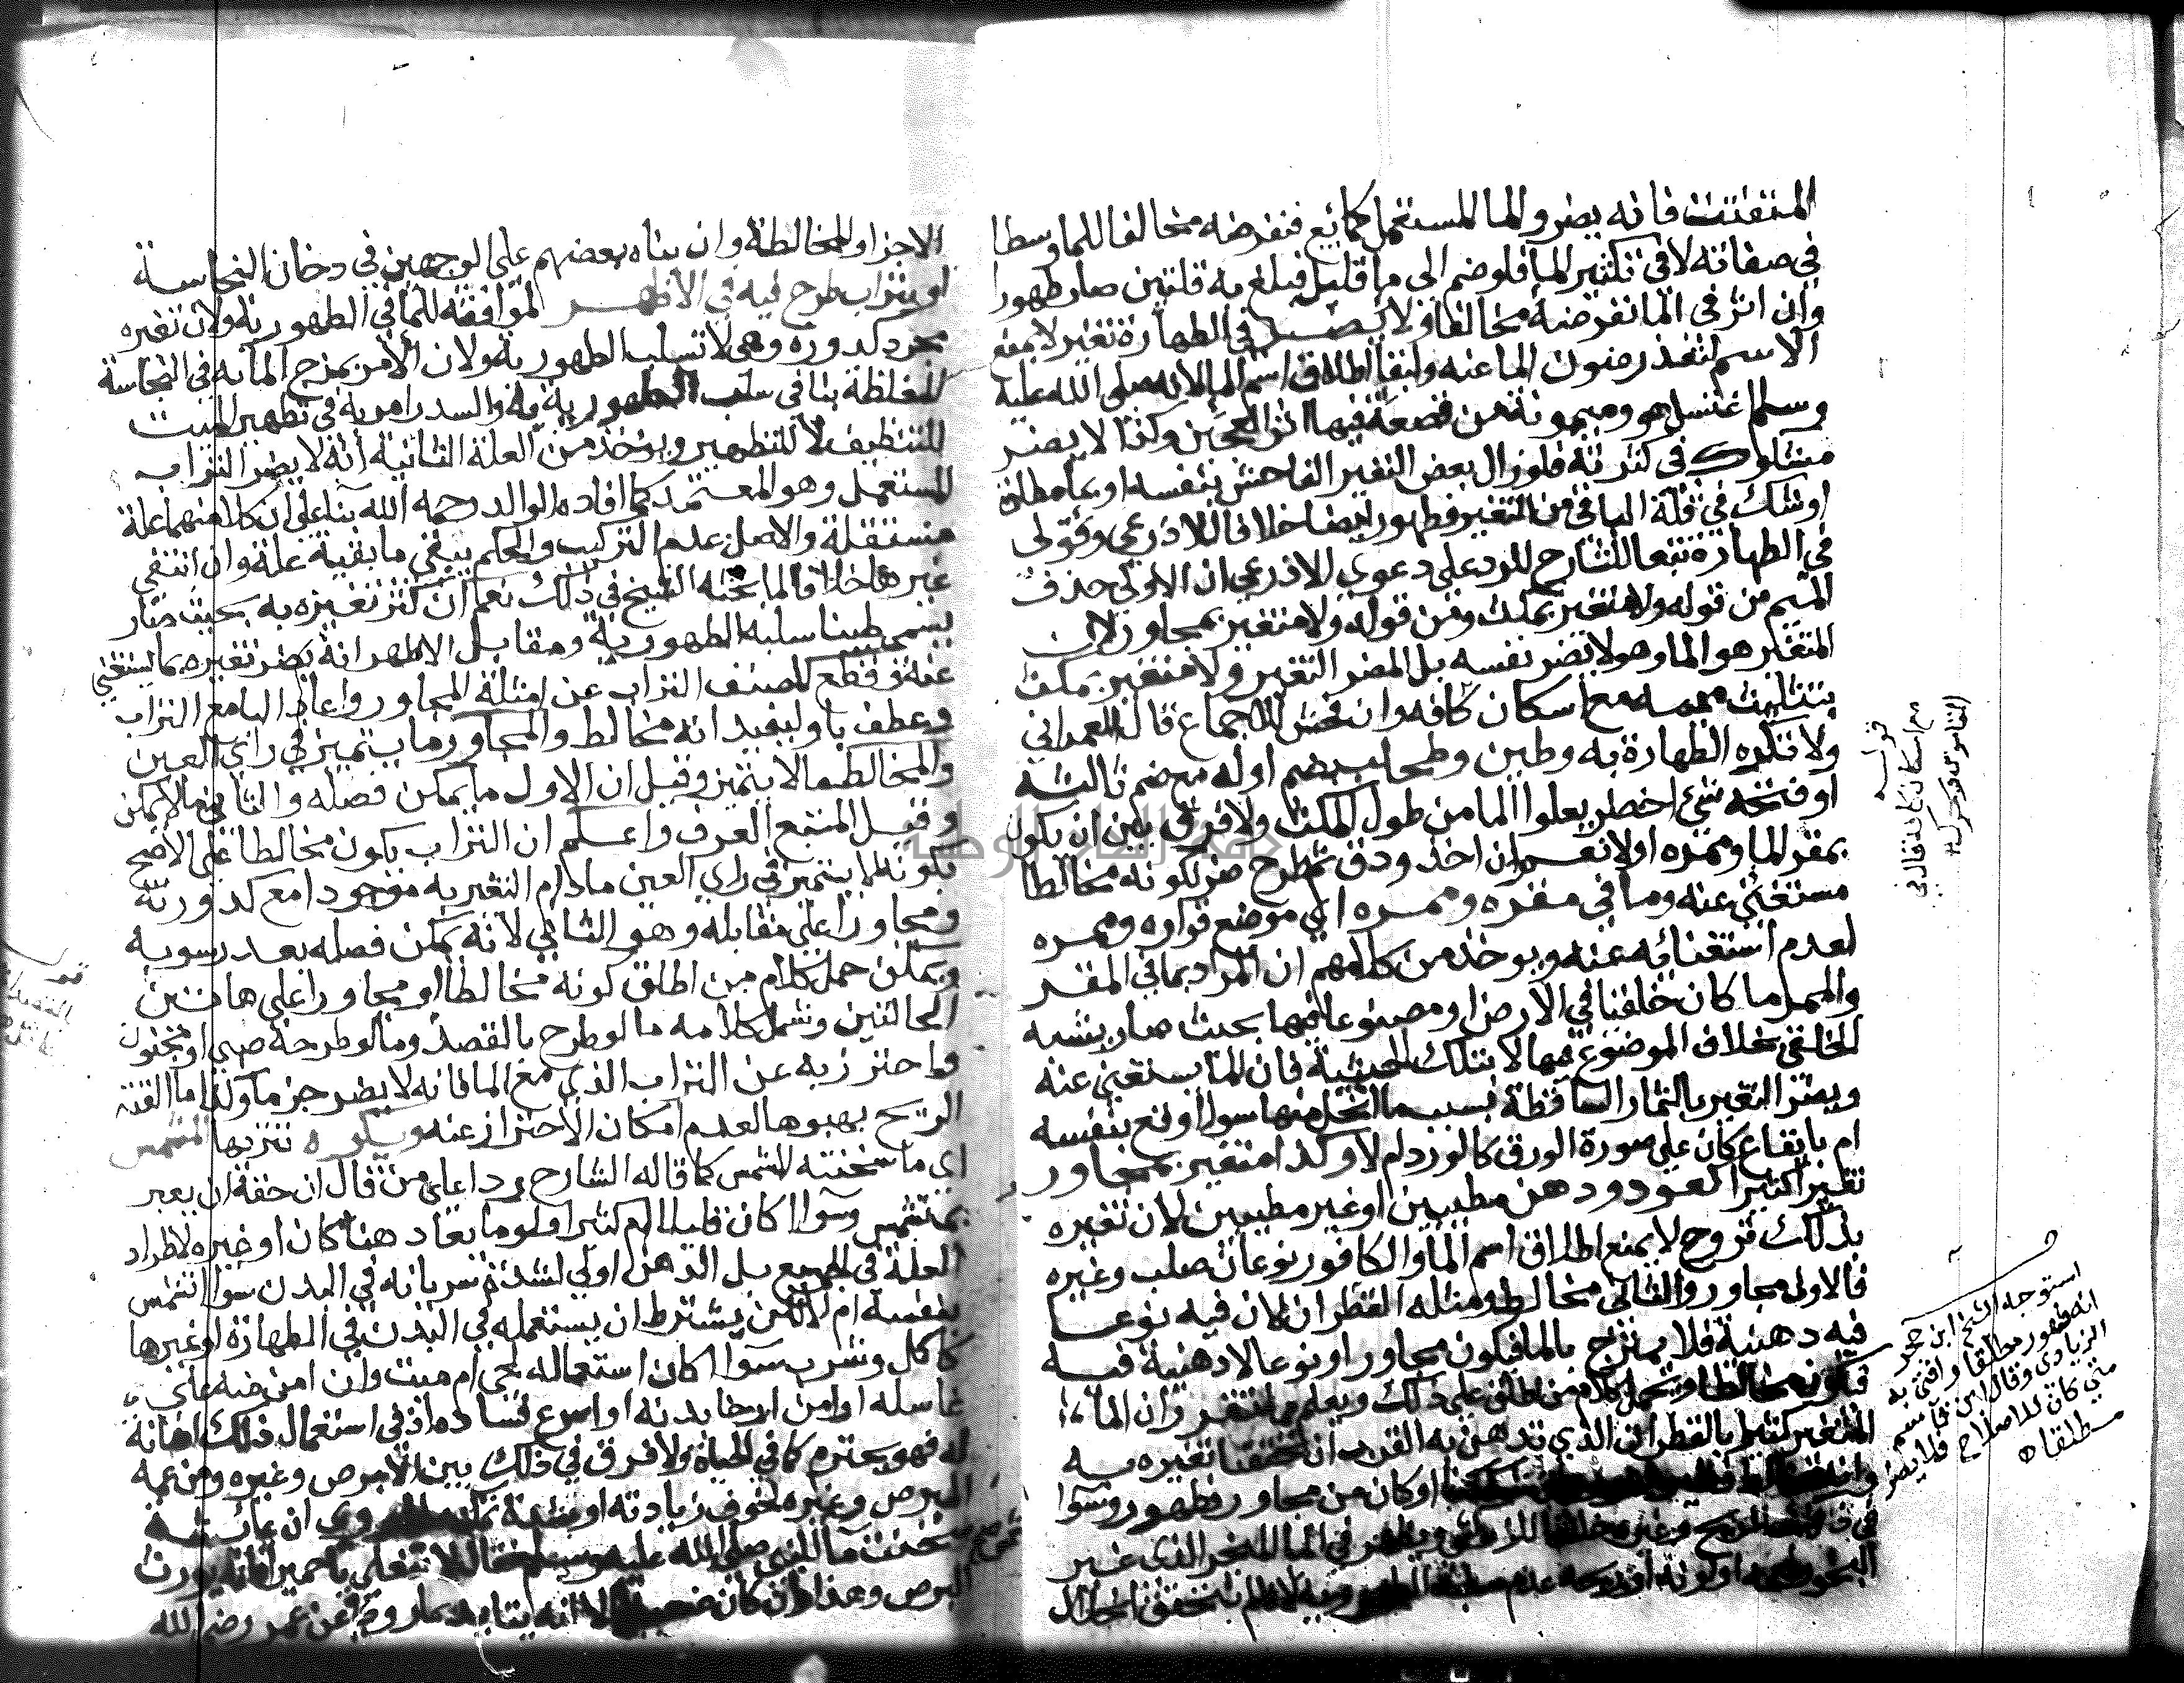 المتفتت فانه يضر والما المستعمل كمائع فنفرضه مخالفا للما وسطا
في صفاته لا في تكثير الما فلو ضم الى ما قليل فبلغ به قلتين صار طهورا
وان اثر في الما نفرضه مخالفا ولا يضر في الطهارة تغير لا يمنع
الاسم لتعذر صون الما عنه ولبقا اطلاق اسم الما لانه صلى الله عليه
وسلم اغتسل هو وميمونة من قصعة فيها اثر العجين وكذا لا يضر
مشكوك في كثرته فلو زال بعض التغير الفاحش بنفسه او بما مطلق
او شك في قلة الباقي من التغير فطهور ايضا خلافا للاذرعي وقولي
في الطهارة تبعا للشارح للرد على دعوى الاذرعي ان الاولى حذف
الميم من قوله ولا متغير بمكث ومن قوله ولا متغير بمجاور لان
المتغير هو الما وهو لا يضر نفسه بل المضر التغير ولا متغير بمكث
بتثليث ميمه مع اسكان كافه وان فحش للاجماع قال العمراني
ولا تكره الطهارة به وطين وطحلب بضم اوله مع ضم ثالثه
او فتحه شيء اخضر يعلوا الما من طول المكث ولا فرق بين ان يكون
بمقر الما وممره اولا نعم ان اخذ ودق ثم طرح ضر لكونه مخالطا
مستغنى عنه وما في مقره وممره اي موضع قراره وممره
لعدم استغنائه عنه ويوخذ من كلامهم ان المراد بما في المقر
والممر ما كان خلقيا في الارض او مصنوعا فيها بحيث صار يشبه
الخلقي بخلاف الموضوع فيها لا بتلك الحيثية فان الما يستغني عنه
ويضر التغير بالثمار الساقطة بسبب ما انحل منها سوا اوقع بنفسه
ام بايقاع كان على صورة الورق كالورد ام لا وكذا متغير بمجاور
تغيرا كثيرا كعود ودهن مطيبين او غير مطيبين لان تغيره
بذلك تروح لا يمنع اطلاق اسم الما والكافور نوعان صلب وغيره
فالاول مجاور والثاني مخالط ومثله القطران لان فيه نوعا
فيه دهنية فلا يمتزج بالما فيكون مجاورا ونوعا لا دهنية فيه
فيكون مخالطا ويحمل كلام من اطلق على ذلك ويعلم مما تقرر ان الما
المتغير كثيرا بالقطران الذي تدهن به القرب ان تحققنا تغيره به
وانه مخالط او كان من مجاور فطهور وسوا
في ذلك الريح وغيره خلافا للزركشي ويظهر في الما المبخر الذي غير
البخور طعمه او لونه او ريحه عدم سلبه الطهورية لانا لم نتحقق انحلال
قوله
مع اسكان كافه قال في
القاموس ويحرك اه
استوجه الشيخ ابن حجر
انه طهور مطلقا وافتى به
الزيادي وقال ابن قاسم
متى كان للاصلاح فلا يضر
مطلقا اه
الاجزا والمخالطة وان بناه بعضهم على الوجهين في دخان النجاسة
او بتراب طرح فيه في الاظهر لموافقته للما في الطهورية ولان تغيره
مجرد كدورة وهي لا تسلب الطهورية ولان الامر بمزج الما به في النجاسة
المغلظة ينافي سلب الطهورية به والسدر امر به في تطهير الميت
للتنظيف لا للتطهير ويوخذ من العلة الثانية انه لا يضر التراب
المستعمل وهو المعتمد كما افاده الوالد رحمه الله بنا على ان كلا منهما علة
مستقلة والاصل عدم التركيب والحكم يبقى ما بقيت علة وان انتفى
غيرها خلافا لما بحثه الشيخ في ذلك نعم ان كثر تغيره به بحيث صار
يسمى طينا سلبه الطهورية ومقابل الاظهر انه يضر تغيره بما يستغنى
عنه وقطع المصنف التراب عن امثلة المجاور واعاد البا مع التراب
وعطف باو ليفيد انه مخالط والمجاور ما يتميز في راي العين
والمخالط ما لا يتميز وقيل ان الاول ما يمكن فصله والثاني ما لا يمكن
وقيل المتبع العرف واعلم ان التراب يكون مخالطا على الاصح
لكونه لا يتميز في راي العين ما دام التغير به موجودا مع كدورته
ومجاورا على مقابله وهو الثاني لانه يمكن فصله بعد رسوبه
ويمكن حمل كلام من اطلق كونه مخالطا او مجاورا على هاتين
الحالتين وشمل كلامه ما لو طرح بالقصد وما لو طرحه صبي او مجنون
واحترز به عن التراب الذي مع الما فانه لا يضر جزما وكذا ما القته
الريح بهبوبها لعدم امكان الاحتراز عنه ويكره تنزيها المشمس
اي ما سخنته الشمس كما قاله الشارح ردا على من قال ان حقه ان يعبر
بمتشمس وسوا اكان قليلا ام كثيرا ولو ما يعا دهنا كان او غيره لاطراد
العلة في الجميع بل الدهن اولى لشدة سريانه في البدن سوا اتشمس
بنفسه ام لا لكن يشترط ان يستعمله في البدن في الطهارة او غيرها
كاكل وشرب سوا اكان استعماله لحي ام ميت وان امن منه على
غاسله او امن ارخا بدنه او اسرع فساده اذ في استعمال ذلك اهانة
له فهو محترم كما في الحياة ولا فرق في ذلك بين الابرص وغيره ومن عمه
البرص وغيره لخوف زيادته او شدة تمكنه روي ان عائشة
سخنت ما للنبي صلى الله عليه وسلم فقال لا تفعلي يا حميرا فانه يورث
البرص وهذا وان كان ضعيفا الا انه يتايد بما روي عن عمر رضي الله